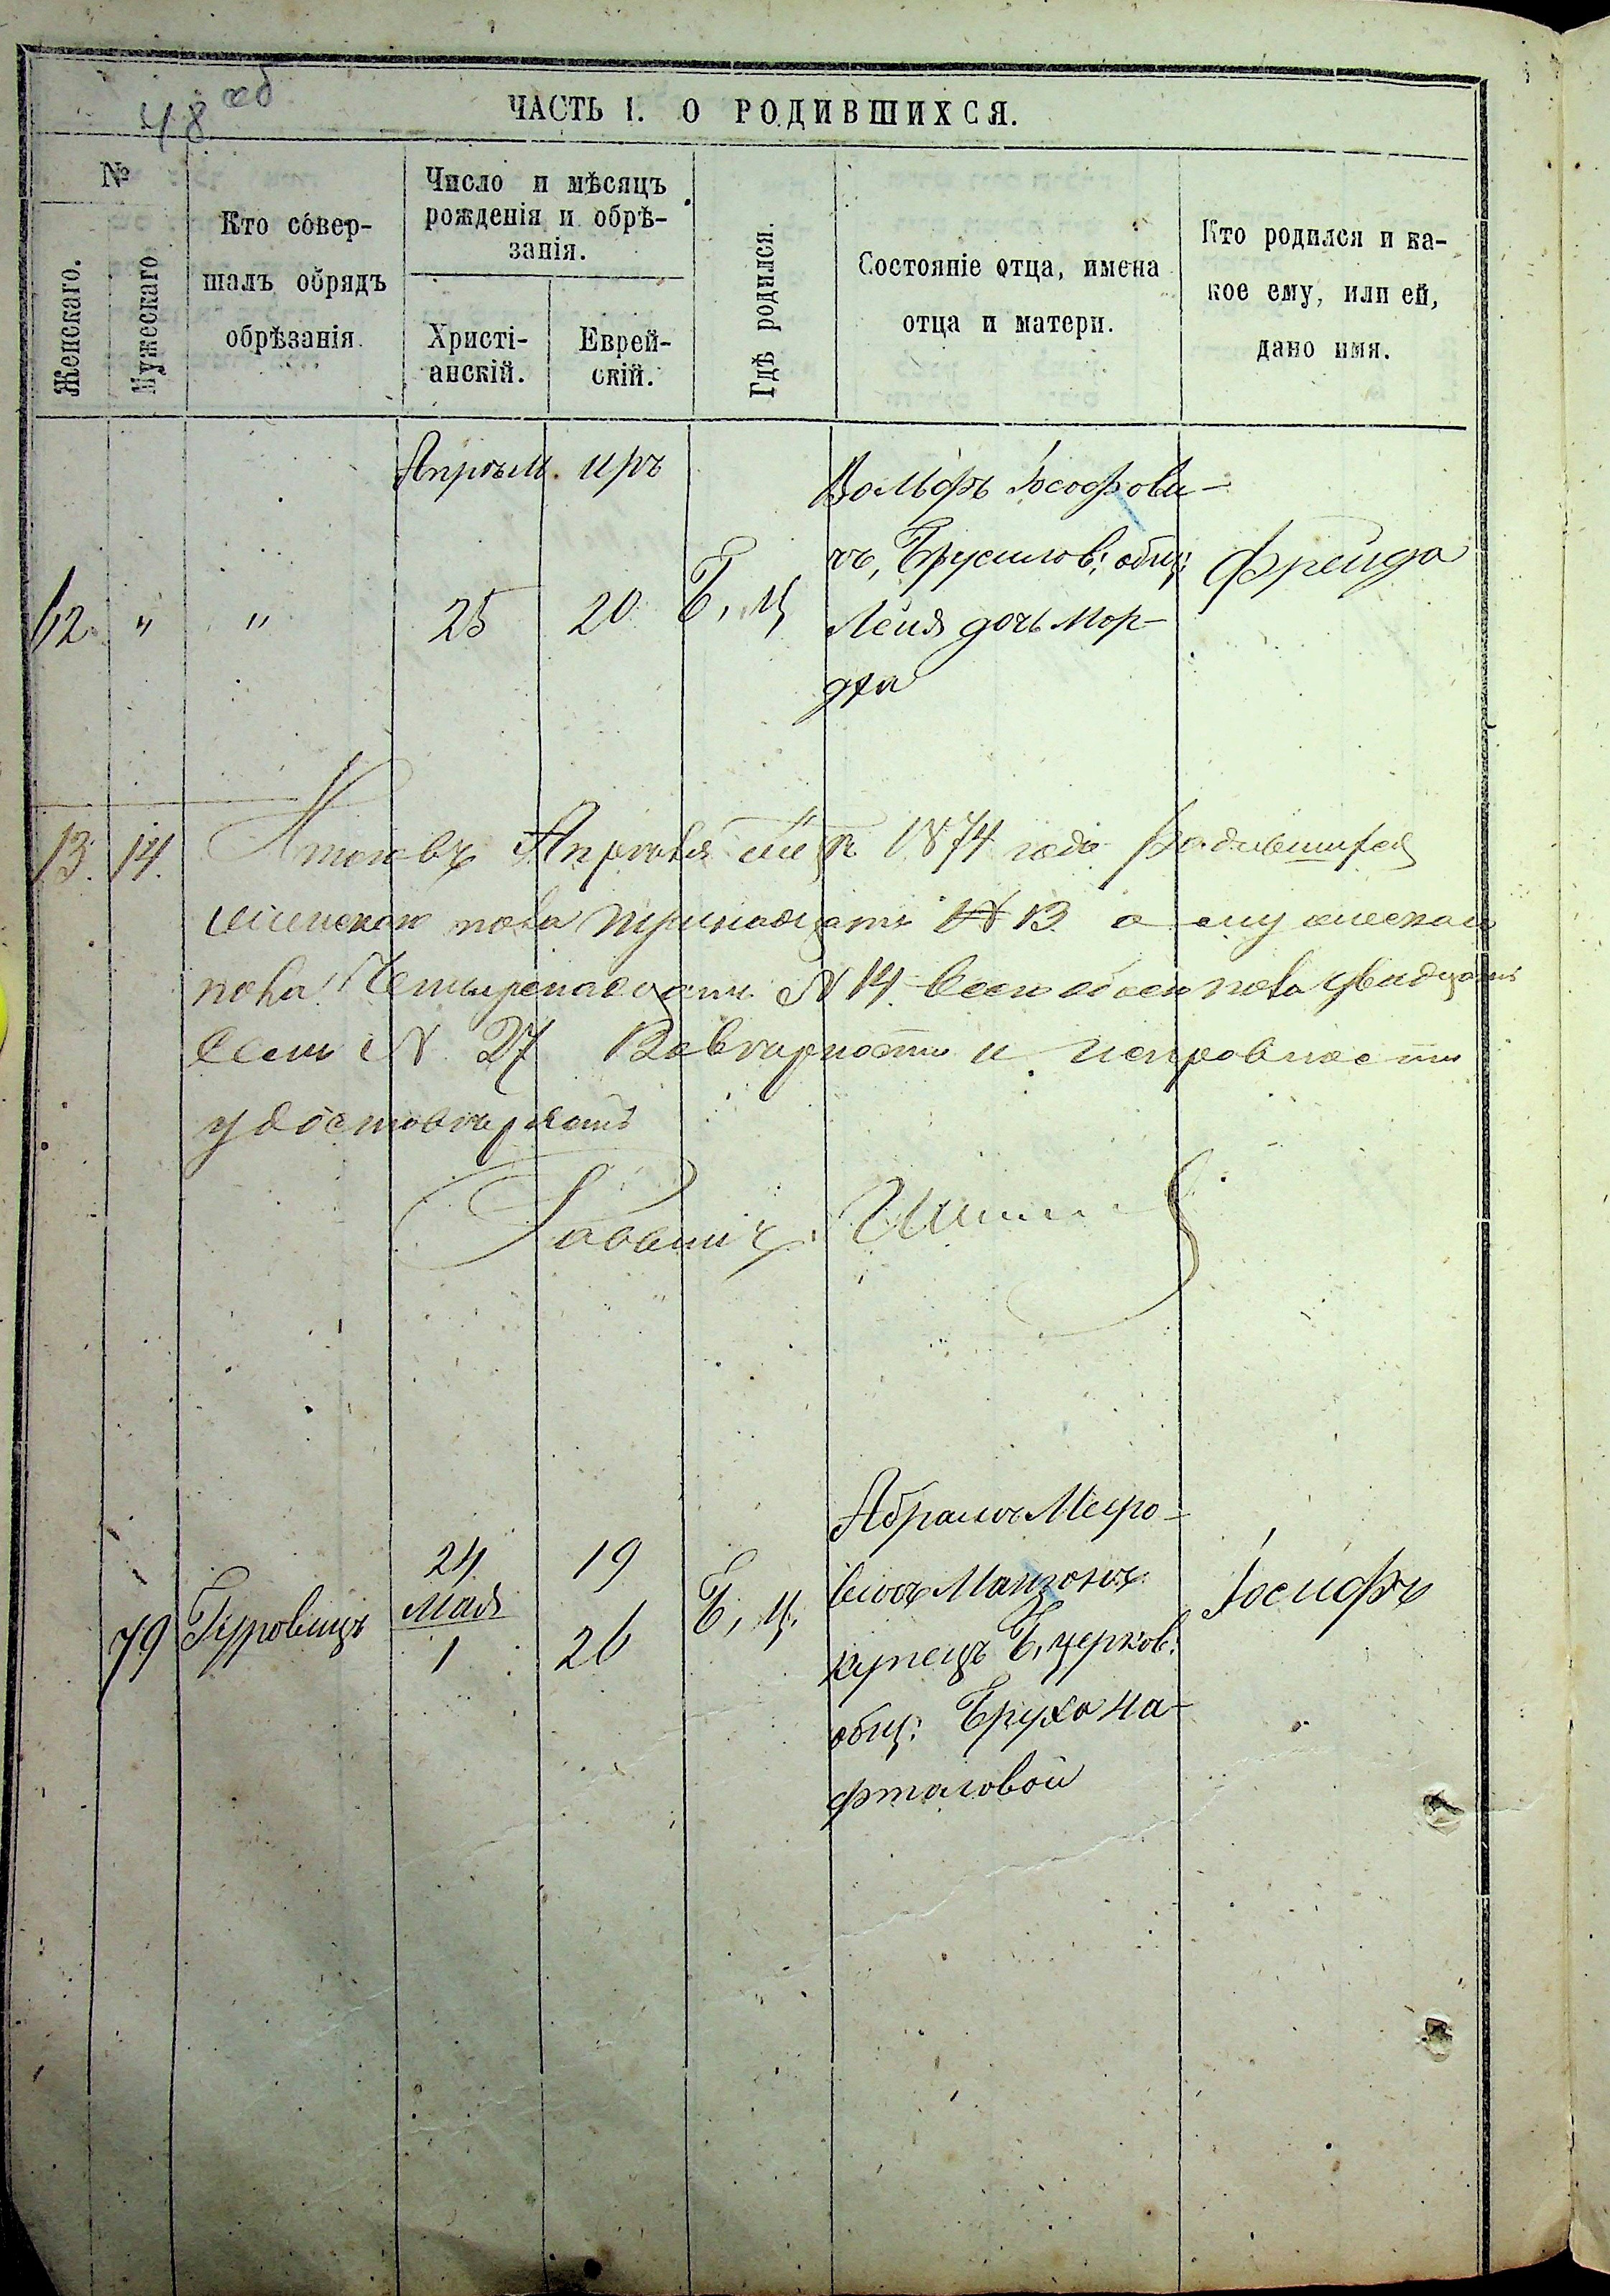 48 об
ЧАСТЬ I. О РОДИВШИХСЯ.
№
Женскаго.
Мужескаго
Кто совер-
шалъ обрядъ
обрѣзанія.
Число и мѣсяцъ
рожденія и обрѣ-
занія.
Христі-
анскій.
Еврей-
скій.
Гдѣ родился.
Состояніе отца, имена
отца и матери.
Кто родился и ка-
кое ему, или ей,
дано имя.
Апрѣль. иръ
62 " " 25 20 Б, ц
Вольфъ Іосифови-
чъ, Брусилов: общ:
Лея дочь Мор-
дха
Фрейда
13. 14. Итого въ Апрѣля 1874 года Родившихся
женскаго пола тринадцать № 13 а мужескаго
пола Четырнадцать № 14 всего обоего пола двадцать
семь № 27 Въ вѣрности и исправности
удостовѣряетъ
Раввинъ
79 Гуровицъ
24
Мая
1
19
26
Б, ц.
Абрамъ Меро-
вичъ Манзонъ
купецъ Б, церков:
общ: Бруха На-
фталовой
Іосифъ